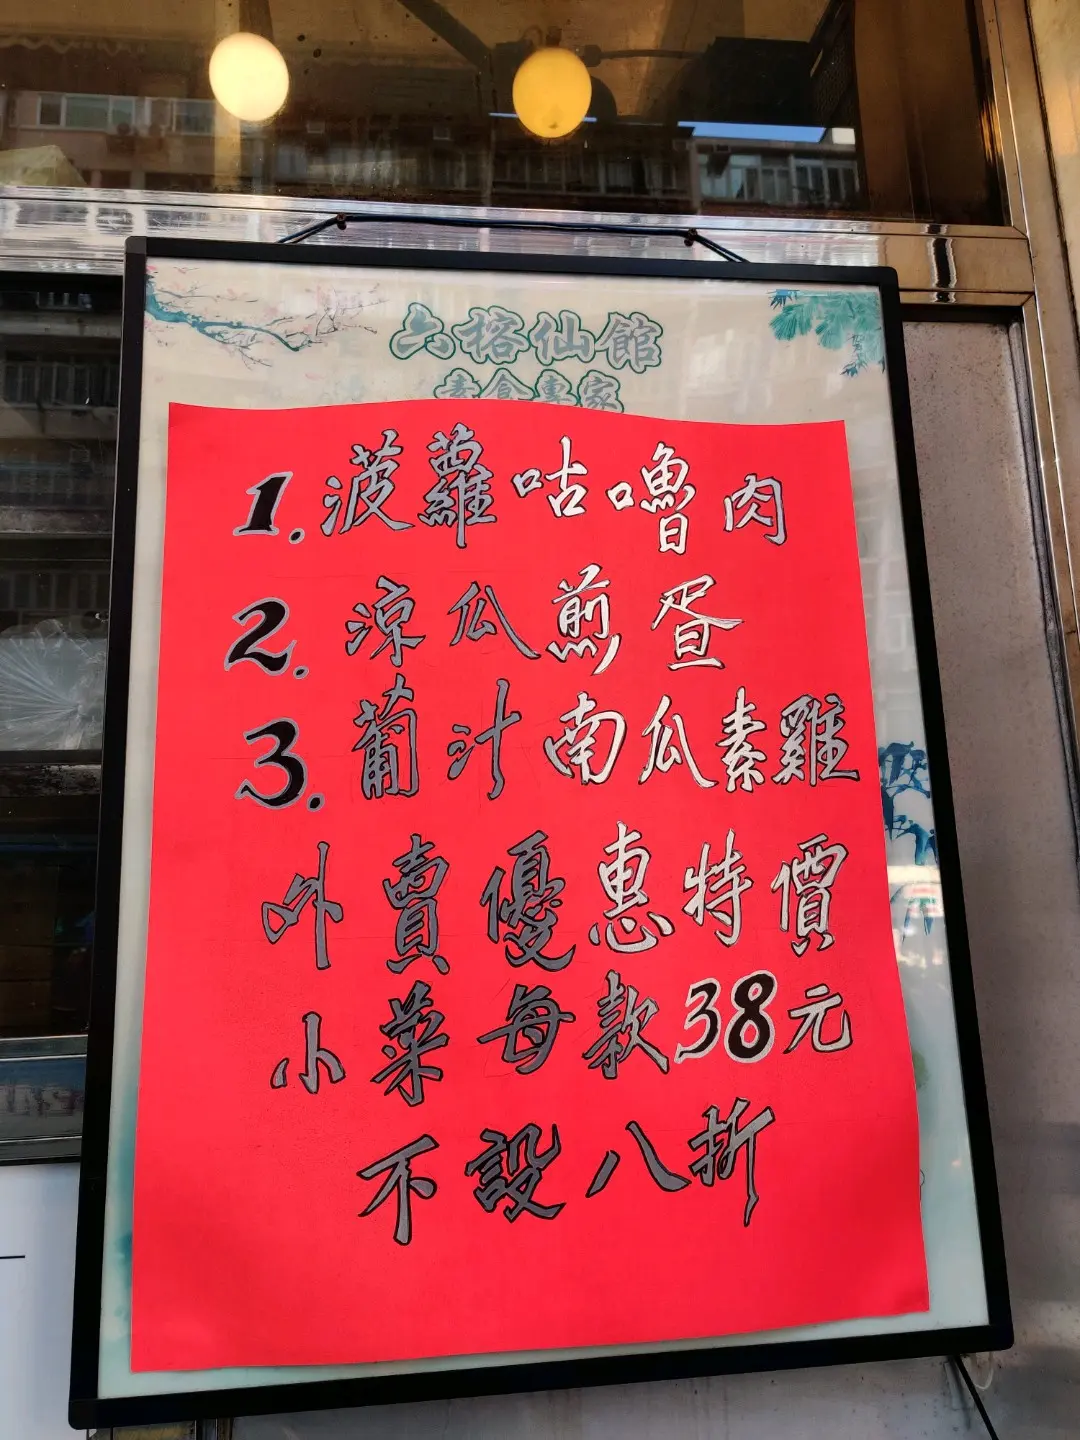 六榕仙館
素食專家
1.菠蘿咕嚕肉
2.涼瓜煎蛋
3.葡汁南瓜素雞
外賣優惠特價
小菜每款38元
不設八折